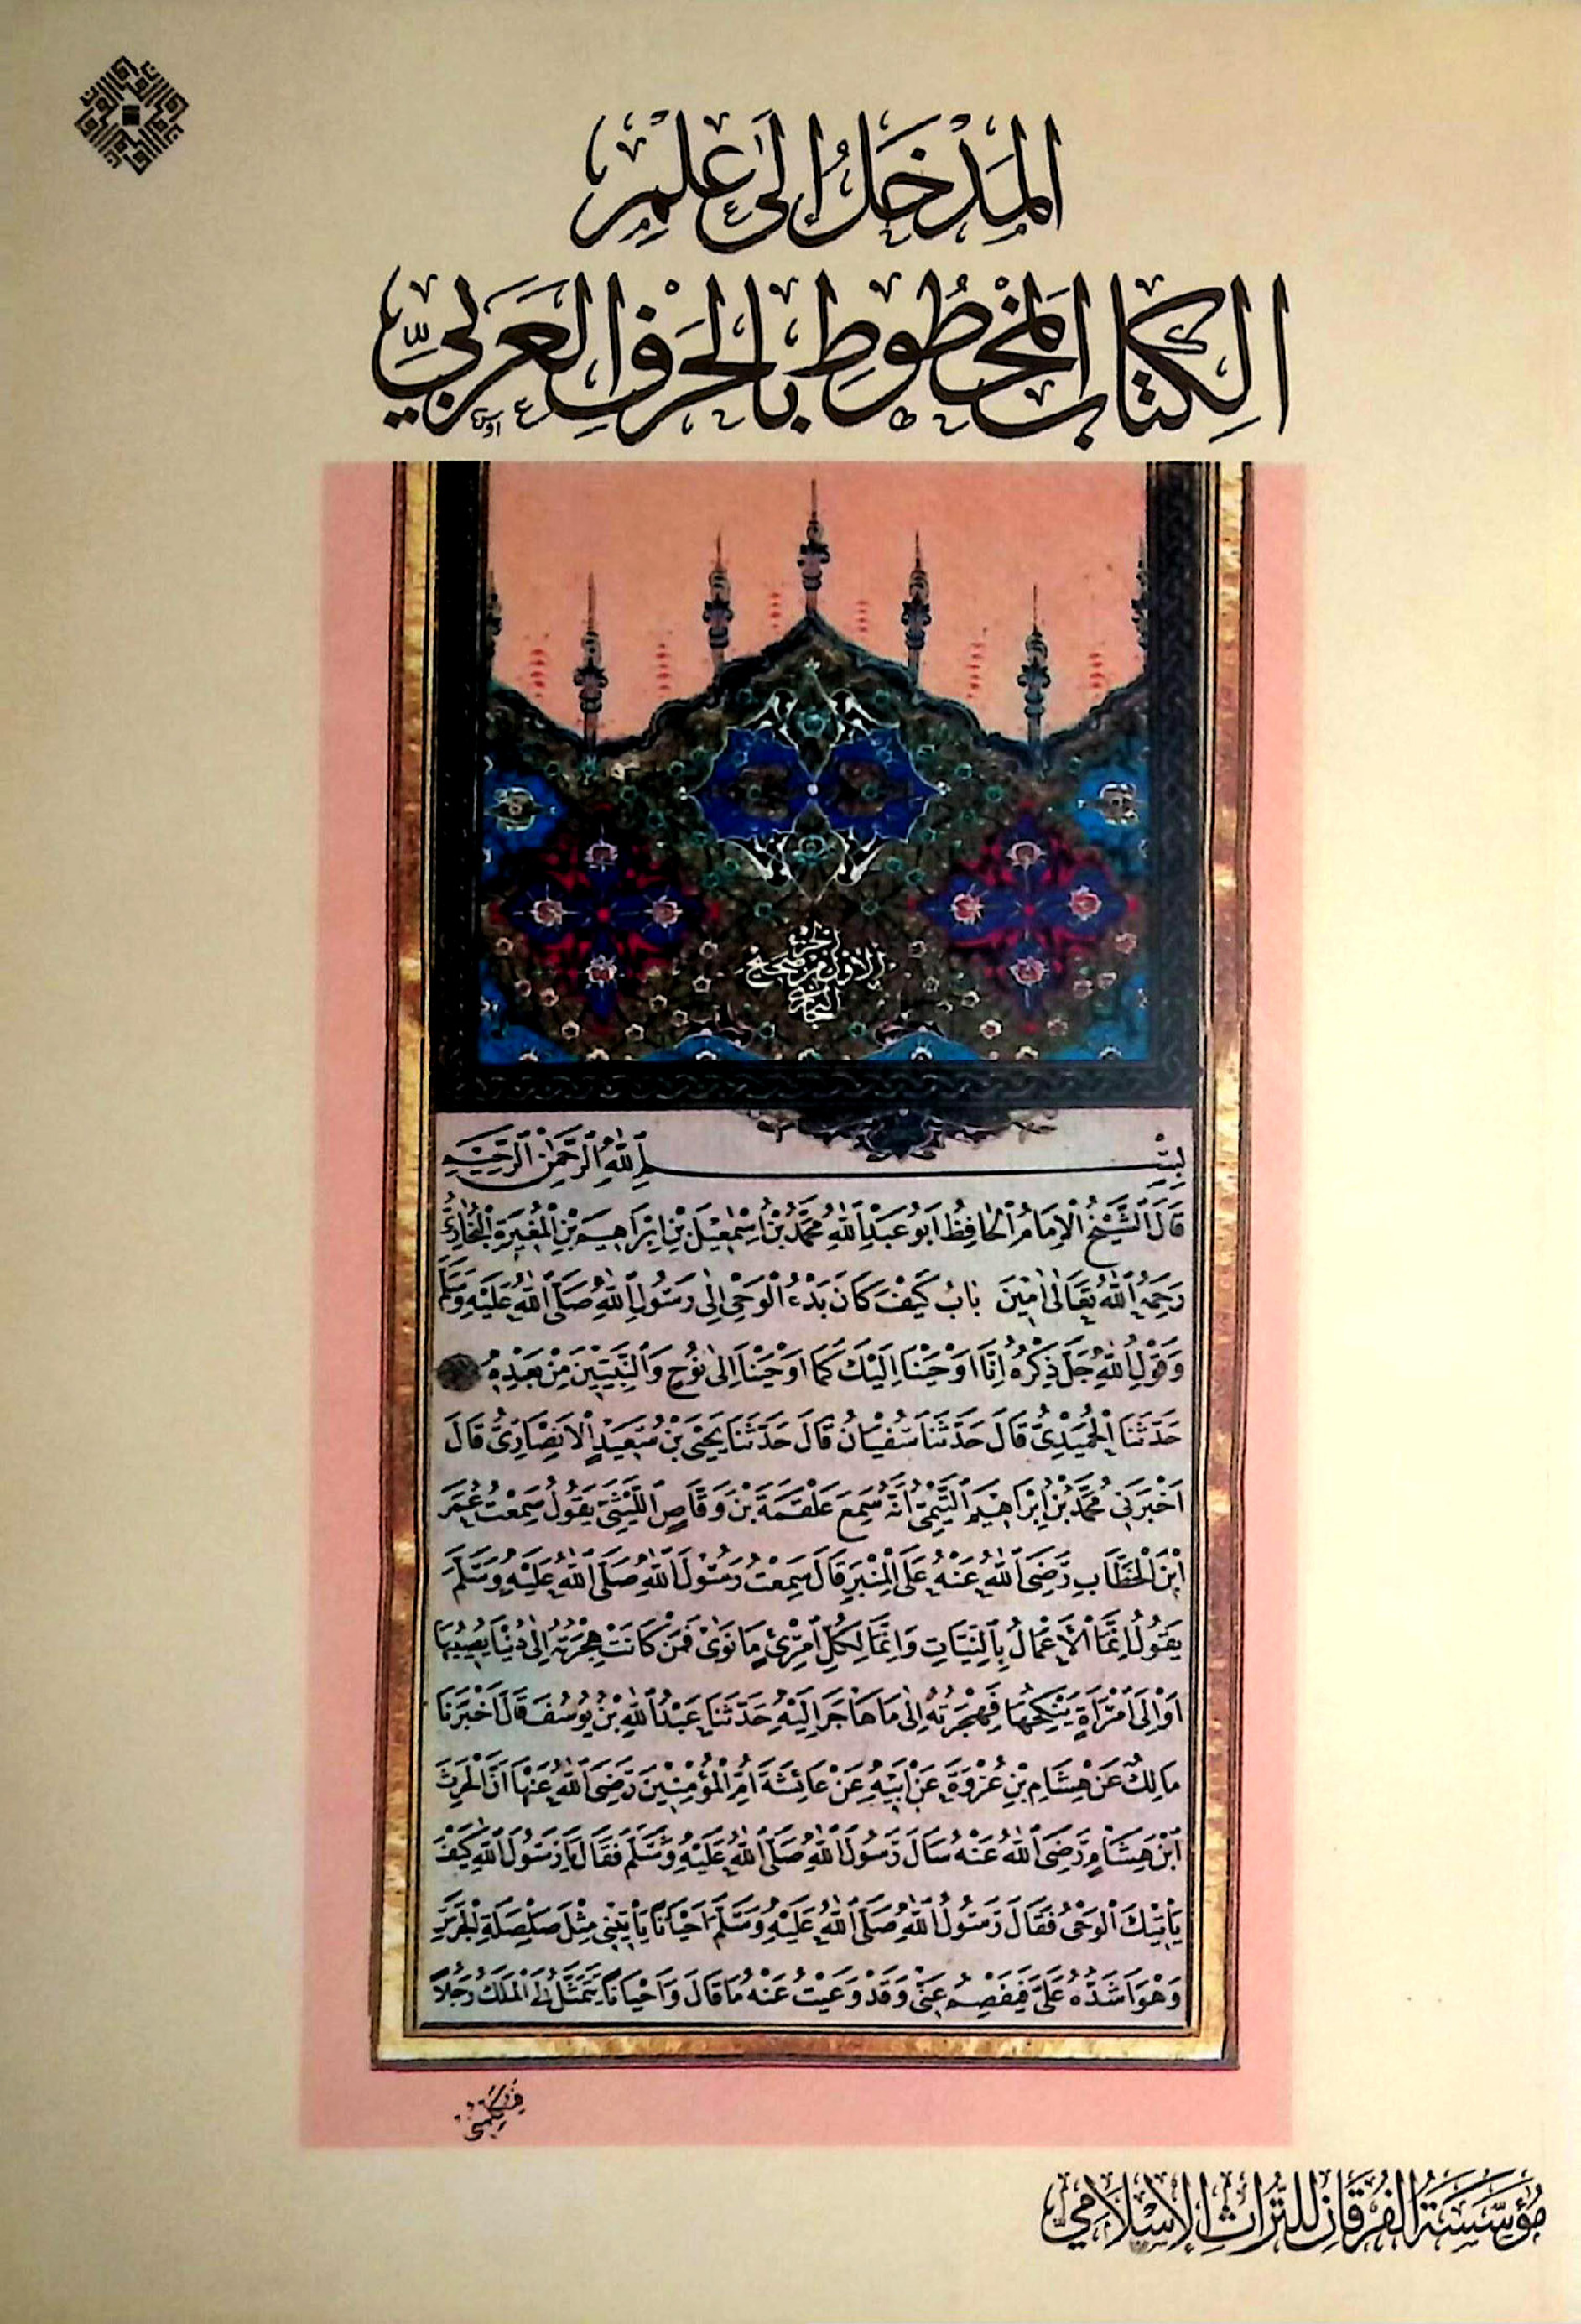 المَدْخَلُ إِلَىٰ عِلْمِ
الكِتَابِ المَخْطُوطِ بِالحَرْفِ العَرَبِيِّ
الجزء
الاول من صحيح
البخاري
بِسْمِ اللّٰهِ الرَّحْمٰنِ الرَّحِيمِ
قَالَ الشَّيْخُ الْاِمَامُ الْحَافِظُ اَبُو عَبْدِ اللّٰهِ مُحَمَّدُ بْنُ اِسْمٰعِيلَ بْنِ اِبْرَاهِيمَ بْنِ الْمُغِيرَةِ الْبُخَارِيُّ
رَحِمَهُ اللّٰهُ تَعَالٰى اٰمِينَ بَابُ كَيْفَ كَانَ بَدْءُ الْوَحْىِ اِلٰى رَسُولِ اللّٰهِ صَلَّى اللّٰهُ عَلَيْهِ وَسَلَّمَ
وَقَوْلِ اللّٰهِ جَلَّ ذِكْرُهُ اِنَّا اَوْحَيْنَا اِلَيْكَ كَمَا اَوْحَيْنَا اِلٰى نُوحٍ وَالنَّبِيِّينَ مِنْ بَعْدِهِ
حَدَّثَنَا الْحُمَيْدِىُّ قَالَ حَدَّثَنَا سُفْيَانُ قَالَ حَدَّثَنَا يَحْيَى بْنُ سَعِيدٍ الْاَنْصَارِىُّ قَالَ
اَخْبَرَنِى مُحَمَّدُ بْنُ اِبْرَاهِيمَ التَّيْمِىُّ اَنَّهُ سَمِعَ عَلْقَمَةَ بْنَ وَقَّاصٍ اللَّيْثِىَّ يَقُولُ سَمِعْتُ عُمَرَ
ابْنَ الْخَطَّابِ رَضِىَ اللّٰهُ عَنْهُ عَلَى الْمِنْبَرِ قَالَ سَمِعْتُ رَسُولَ اللّٰهِ صَلَّى اللّٰهُ عَلَيْهِ وَسَلَّمَ
يَقُولُ اِنَّمَا الْاَعْمَالُ بِالنِّيَّاتِ وَاِنَّمَا لِكُلِّ امْرِئٍ مَا نَوٰى فَمَنْ كَانَتْ هِجْرَتُهُ اِلٰى دُنْيَا يُصِيبُهَا
اَوْ اِلَى امْرَاَةٍ يَنْكِحُهَا فَهِجْرَتُهُ اِلٰى مَا هَاجَرَ اِلَيْهِ حَدَّثَنَا عَبْدُ اللّٰهِ بْنُ يُوسُفَ قَالَ اَخْبَرَنَا
مَالِكٌ عَنْ هِشَامِ بْنِ عُرْوَةَ عَنْ اَبِيهِ عَنْ عَائِشَةَ اُمِّ الْمُؤْمِنِينَ رَضِىَ اللّٰهُ عَنْهَا اَنَّ الْحٰرِثَ
ابْنَ هِشَامٍ رَضِىَ اللّٰهُ عَنْهُ سَاَلَ رَسُولَ اللّٰهِ صَلَّى اللّٰهُ عَلَيْهِ وَسَلَّمَ فَقَالَ يَا رَسُولَ اللّٰهِ كَيْفَ
يَأْتِيكَ الْوَحْىُ فَقَالَ رَسُولُ اللّٰهِ صَلَّى اللّٰهُ عَلَيْهِ وَسَلَّمَ اَحْيَانًا يَأْتِينِى مِثْلَ صَلْصَلَةِ الْجَرَسِ
وَهْوَ اَشَدُّهُ عَلَىَّ فَيَفْصِمُ عَنِّى وَقَدْ وَعَيْتُ عَنْهُ مَا قَالَ وَاَحْيَانًا يَتَمَثَّلُ لِىَ الْمَلَكُ رَجُلًا
فَيُكَلِّمُنِى
مُؤَسَّسَةُ الفُرْقَانِ لِلتُّرَاثِ الإِسْلَامِي